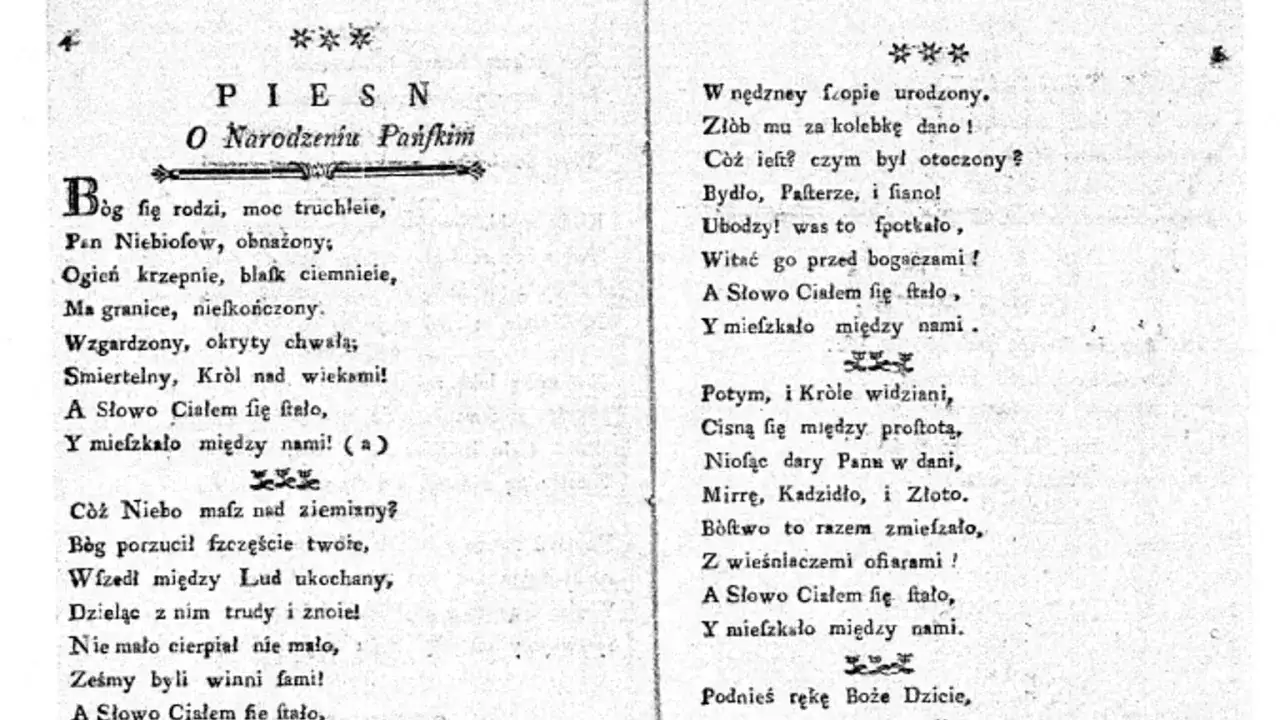 4
PIESN
O Narodzeniu Pańſkim
Bòg ſię rodzi, moc truchleie,
Pan Niebioſow, obnażony;
Ogień krzepnie, blaſk ciemnieie,
Ma granice, nieſkończony.
Wzgardzony, okryty chwałą;
Smiertelny, Kròl nad wiekami!
A Słowo Ciałem ſię ſtało,
Y mieſzkało między nami! (a)
Còż Niebo maſz nad ziemiany?
Bòg porzucił ſzczęście twoie,
Wſzedł między Lud ukochany,
Dzieląc z nim trudy i znoie!
Nie mało cierpiał nie mało,
Ześmy byli winni ſami!
A Słowo Ciałem ſię ſtało,
5
W nędzney ſzopie urodzony.
Złòb mu za kolebkę dano!
Còż ieſt? czym był otoczony?
Bydło, Paſterze, i ſiano!
Ubodzy! was to ſpotkało,
Witać go przed bogaczami!
A Słowo Ciałem ſię ſtało,
Y mieſzkało między nami.
Potym, i Kròle widziani,
Ciſną ſię między proſtotą,
Nioſąc dary Panu w dani,
Mirrę, Kadzidło, i Złoto.
Bòſtwo to razem zmieſzało,
Z wieśniaczemi ofiarami!
A Słowo Ciałem ſię ſtało,
Y mieſzkało między nami.
Podnieś rękę Boże Dzicie,